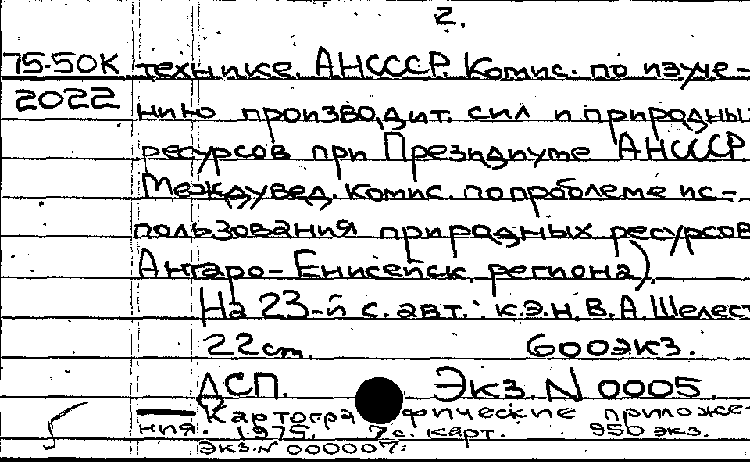 2.
75-50К технике. АНСССР. Комис. по изуче-
2022 нию производит. сил и природных
ресурсов при Президиуме АНСССР.
Междувед. комис. по проблеме ис-
пользования природных ресурсов
Ангаро-Енисейск. региона).
На 23-й с. авт.: к.э.н. В.А. Шелест
22 см. 600 экз.
ДСП. Экз. N 0005.
Картографические приложе-
ния. 1975. 7 с. карт. 950 экз.
Экз. N 000007.